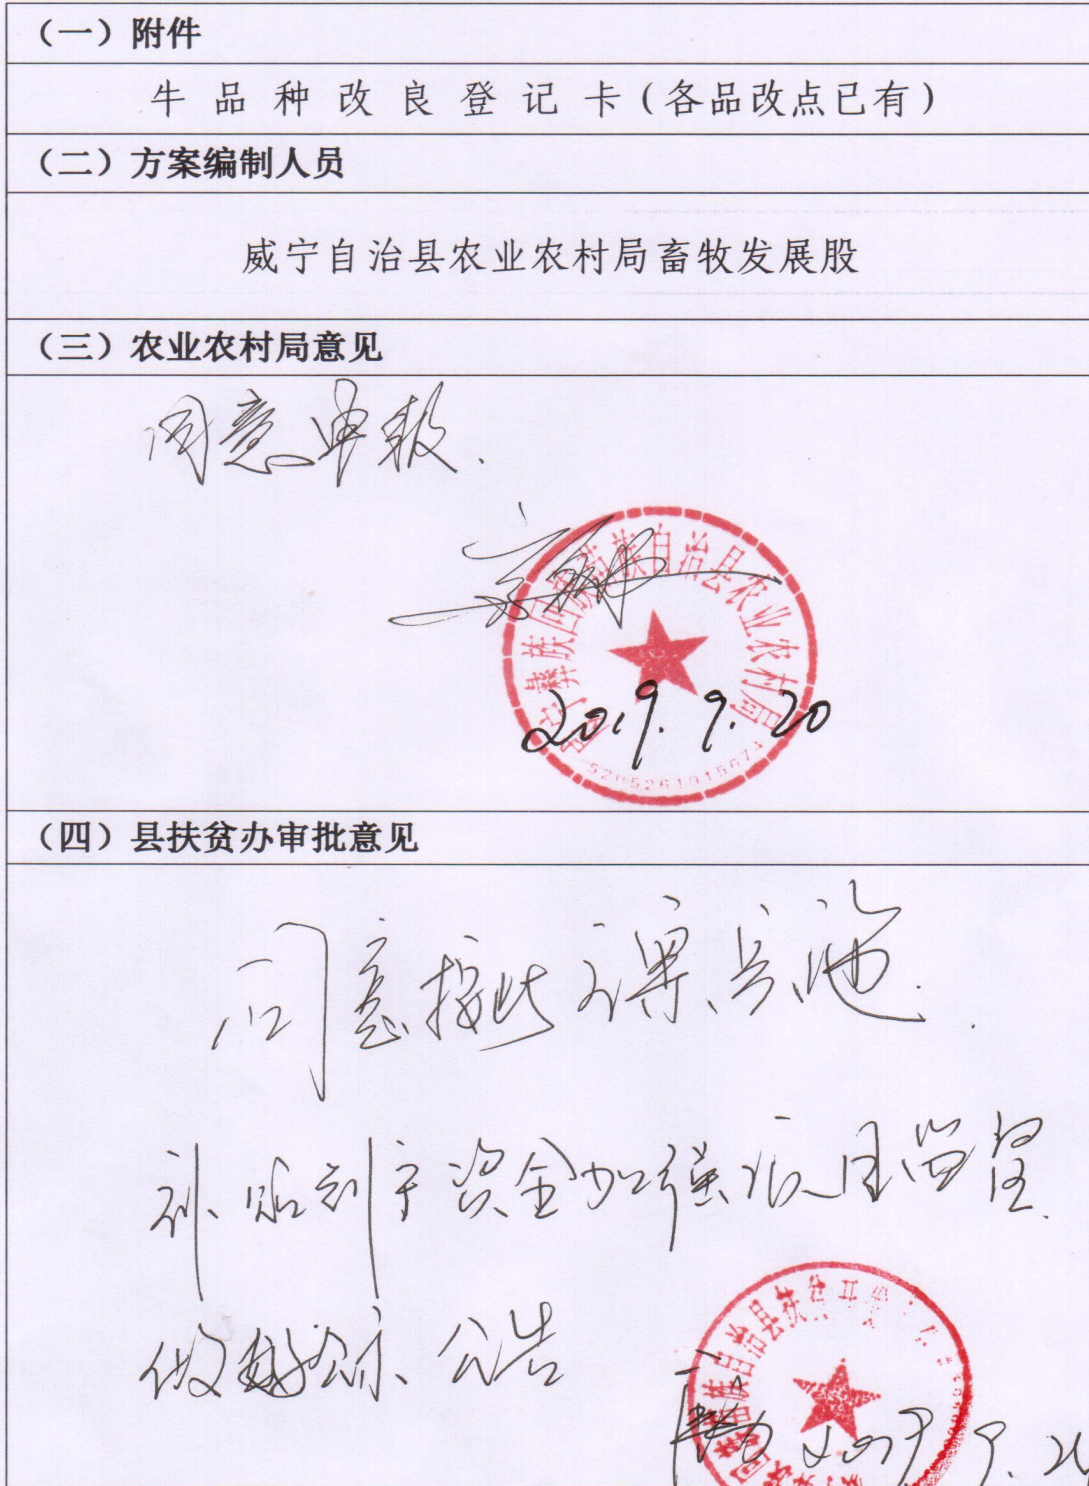 （一）附件
牛品种改良登记卡（各品改点已有）
（二）方案编制人员
威宁自治县农业农村局畜牧发展股
（三）农业农村局意见
同意申报.
威宁彝族回族苗族自治县农业农村局
2019.9.20
5205261015674
（四）县扶贫办审批意见
同意按此方案实施.
补贴到户资金加强项目监管.
做好公示、公告
族自治县扶贫开发
2019.9.2